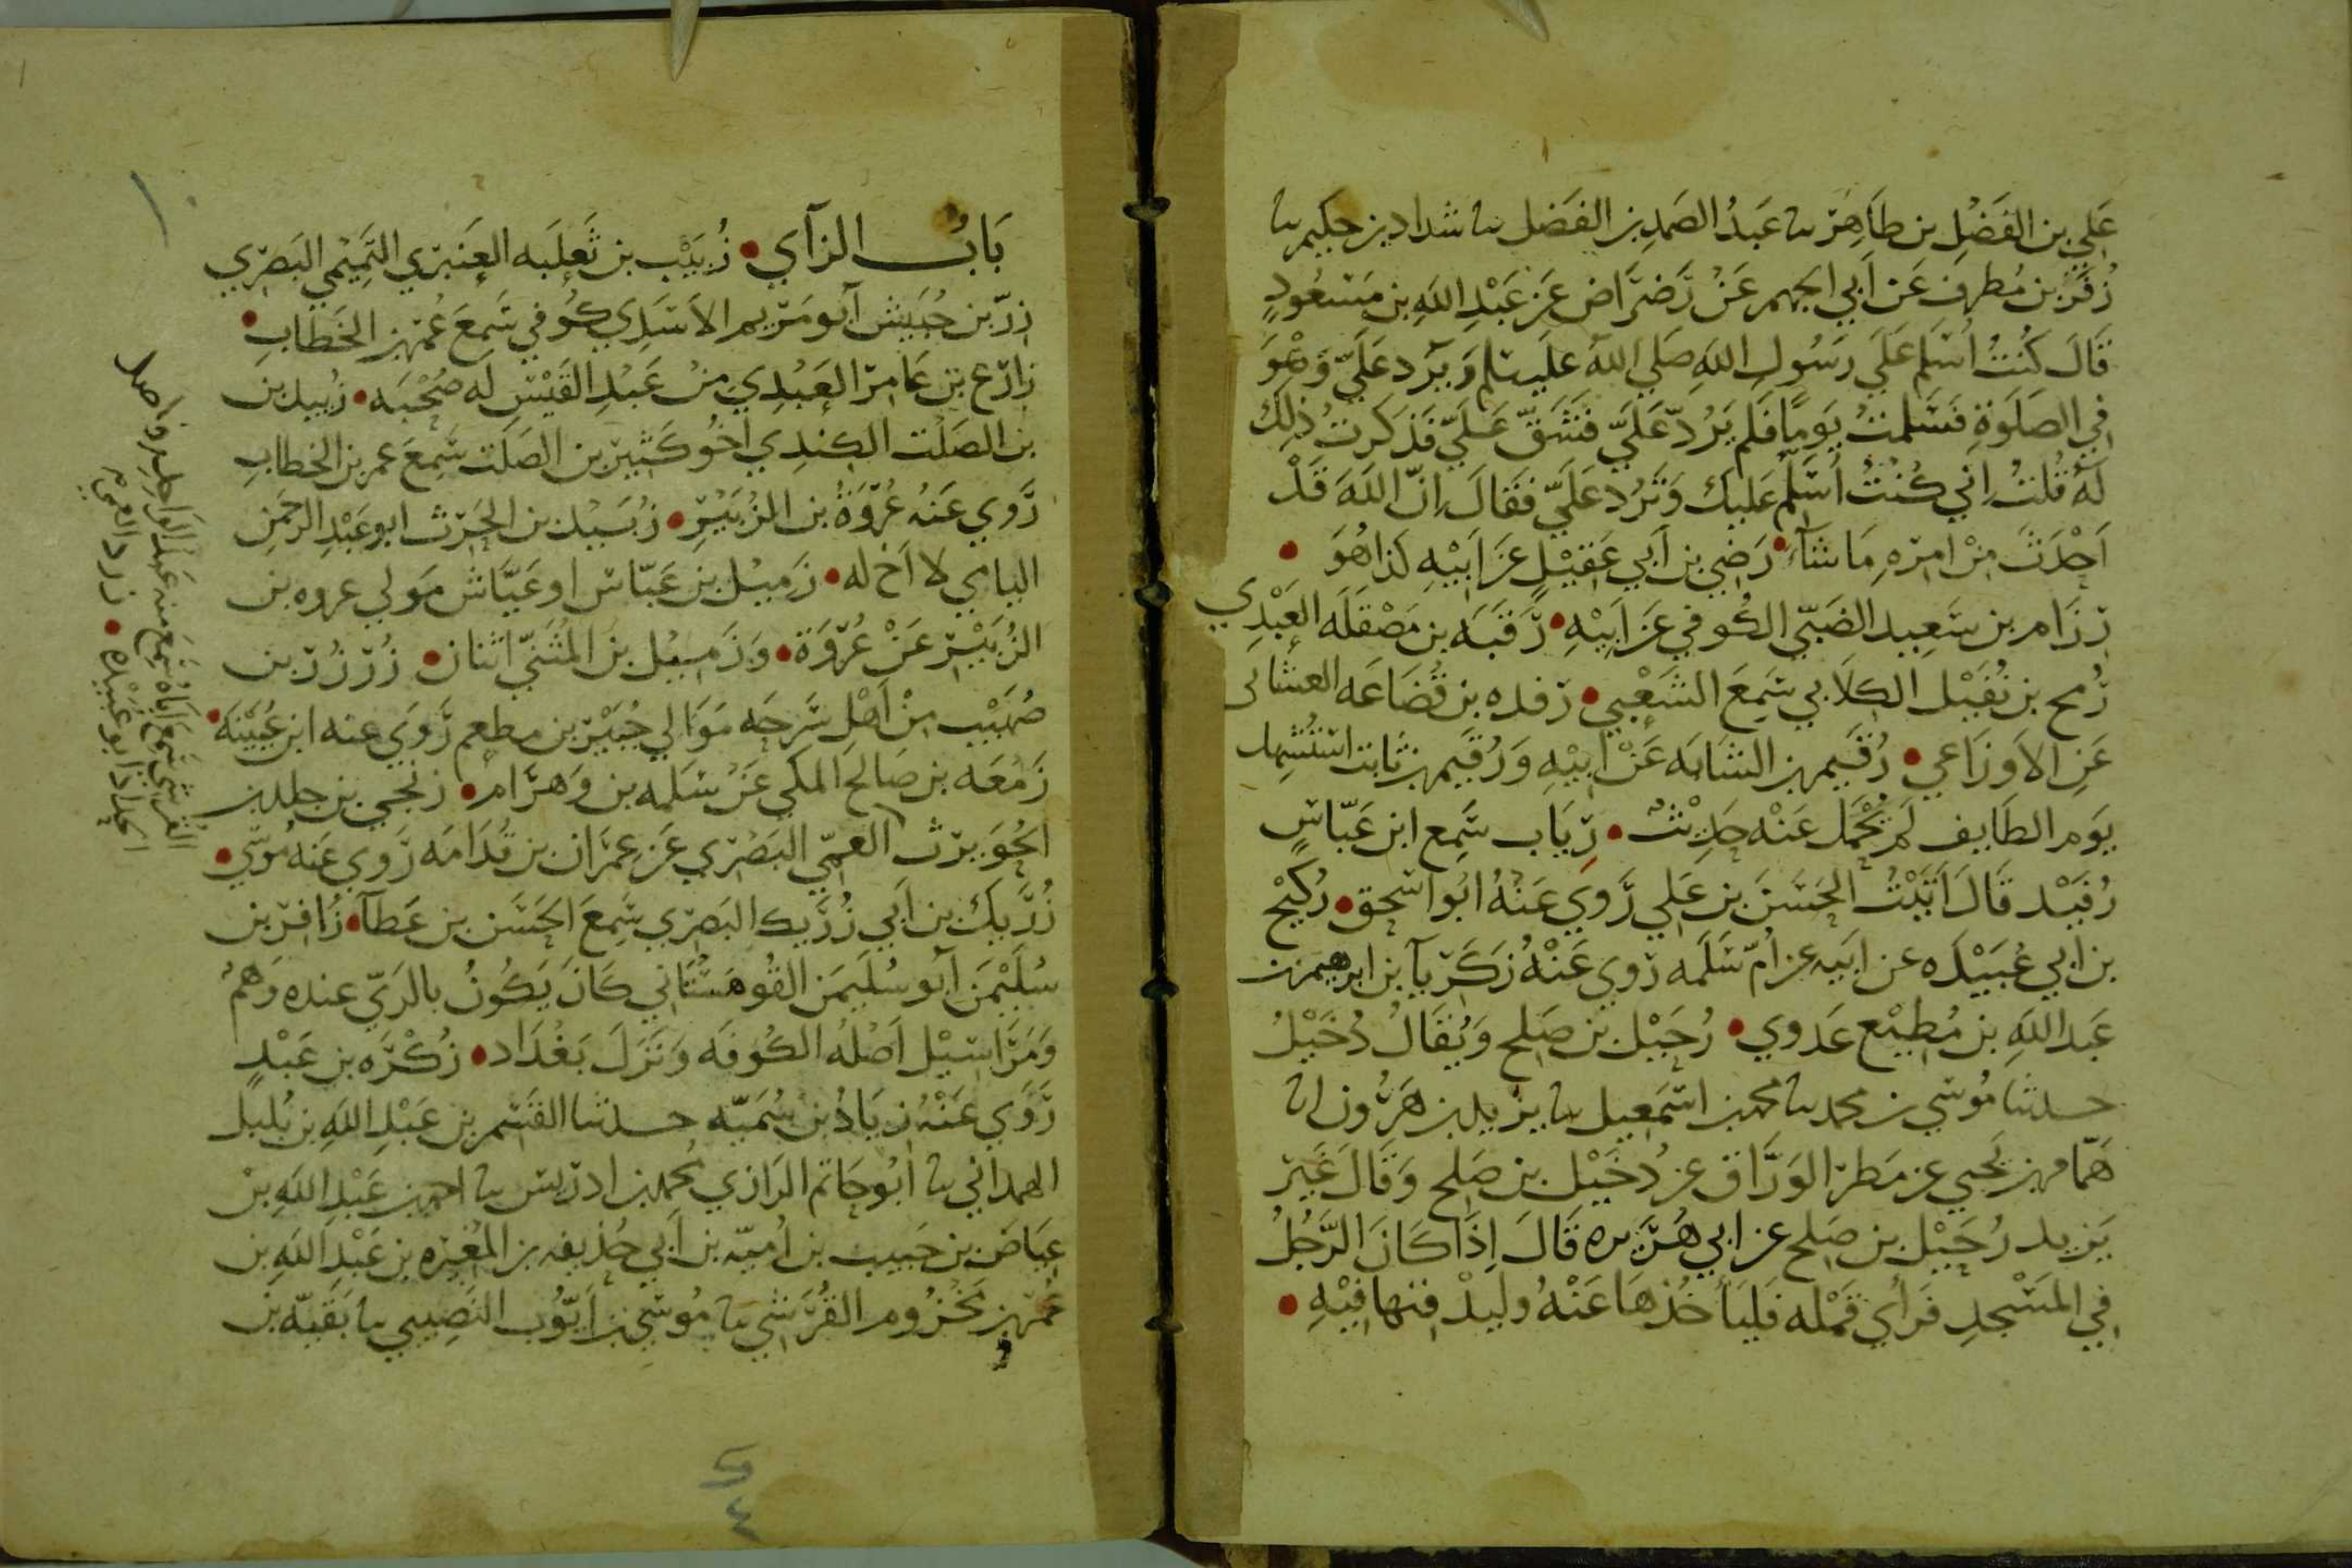 عَلي بن الفَضْلِ بن طَاهِرٍ نا عَبدُ الصَمدِ بن الفَضل نا شداد بن حكيم نا
زُفَر بن مُطرفٍ عَن اَبي الجهم عَنْ رَضرَاض عَن عَبْدِ اللهِ بن مَسعُودٍ
قَالَ كُنتُ اُسَلِم عَلَي رَسُولِ اللهِ صَلي اللهُ عليه سلم وَيَرد عَلَيَّ وَهْوَ
فِي الصَلَوةِ فَسَلمتُ يَومًا فَلم يَرُدّ عَلَيَّ فَشَقَّ عَلَيّ فَذكرتُ ذلِكَ
لَهُ قُلتُ اِني كُنْتُ اُسَلِّم عَليك وَتَرُد عَلَيَّ فَقَالَ اِنّ اللهَ قَدْ
اَحْدَثَ مِنْ امرِهِ مَا شآءَ • رَضِي بن اَبي عَقِيْلٍ عَن اَبيْهِ كَذا هُوَ •
رِزَام بن سَعِيد الضَبّي الكُوفي عَن اَبِيْهِ • رَقَبَه بن مَصْقلَه العَبْدِي
رُمح بن نُفَيْل الكِلاَبي سَمِعَ الشَعْبِي • رفده بن قُضَاعَه الغسَّاني
عَنِ الاَوزَاعي • رُقَيم بن الشابَه عَنْ اَبيْهِ وَرُقَيم بن ثَابت استُشهِد
يَوم الطَايف لَم يُحْمَل عَنْه حَدِيْثٌ • رِيَاب سَمِع ابن عَبّاسٍ
رُفَيْد قَالَ اَتَيْتُ الحَسَنَ بن عَلي رَوي عَنْهُ ابُو اسحق • رُكَيْح
بن ابي عُبَيْدَه عن ابَيه عن اُمّ سَلَمه رَوي عَنْهُ زَكَرّيآ بن ابرهيم بن
عَبد اللهِ بن مُطِيْع عَدوي • رُحَيْل بن صَلح وَيُقَالُ دُخَيْلُ
حدثنا مُوسي بن محمد نا محمد بن اسمَعيل نا يزيد بن هَرُون انا
هَمّام بن يحيي عن مَطر الوَرَّاق عن دُخَيْل بن صَلح وَقَالَ غَيَر
يَزيد رُحَيْل بن صَلح عن ابي هُرَيره قَالَ اِذَا كَانَ الرَجُلُ
فِي المَسْجدِ فَرَأي قَمْله فَليَأ خُذ هَا عَنْهُ وليَدْفِنها فِيْهِ •
بَابُ الزآي • زُبَيْب بن ثَعلَبَه العَنبَري التَمِيْمي البَصْري
زِرّ بن حُبَيش اَبو مَريم الاَسَدِي كُوفي سَمِعَ عُمَر بن الخَطابِ •
زارِع بن عَامِر العَبْدِي مِنْ عَبْدِ القَيْسِ لَه صُحْبَه • زُبيد بن
بن الصَلْت الكِندِي اخُو كَثِير بن الصَلَت سَمِعَ عمر بن الخطابِ
رَوي عَنهُ عُرْوَةُ بن الزُبَيْرِ • زُبَيْد بن الحَرث ابو عَبْدِ الرحمَنِ
اليامي لا اَخ له • زَميْل بن عَبّاس او عَيَّاش مَولي عروه بن
الزُبَيْر عَنْ عُرْوَة • وَزُمَيْل بن المُثَنيّ اثنان • زُرْزُرُ بن
صُهَيْب مِنْ اَهْلِ شَرجَه مَوَالي جُبَيْر بن مطعم رَوَي عنه ابن عُيَيْنَه •
زَمْعَه بن صَالح المَكي عَنْ سَلمه بن وَهرَام •
الحُوَيرث العَمِّي البَصْري عَن عِمْرَان بن قُدَامَه رَوي عَنه مُوسَي •
زُرَيك بن اَبي زُرَيك البَصْري سَمِعَ الحَسَن بن عَطَآ • زَافِر بن
سُلَيْمَن اَبو سُلَيمَن القُوهستَاني كَانَ يَكُونُ بالرَيّ عنده وَهْمٌ
وَمَرَاسِيْل اَصْلُهُ الكُوفَه وَنَزَلَ بَغْدَاد • زُكْرَه بن عَبْدٍ
رَوَي عَنْهُ زِيَادُ بن سُمَيّه حدثنا القسم بن عَبْدِ اللهِ بن بُلبل
الهمداني نا ابُو حَاتم الرَازي محمد بن ادرِيس نا احمد بن عَبْدِ اللهِ بن
عِيَاض بن حَبيب بن اُميّه بن اَبي حُذيفه بن المُغيْره بن عَبْدِ اللهِ بن
عُمَر بن مَخْزُوم القُرَشي نا مُوسي بن اَيّوُب النَصِيبي نا بَقيّه بن
عَبد الواحد
سَمِعَ منه
سَمِعَ اَبَاهُ
القرشي
الحداد ابو عُبَيْدَه •
٤